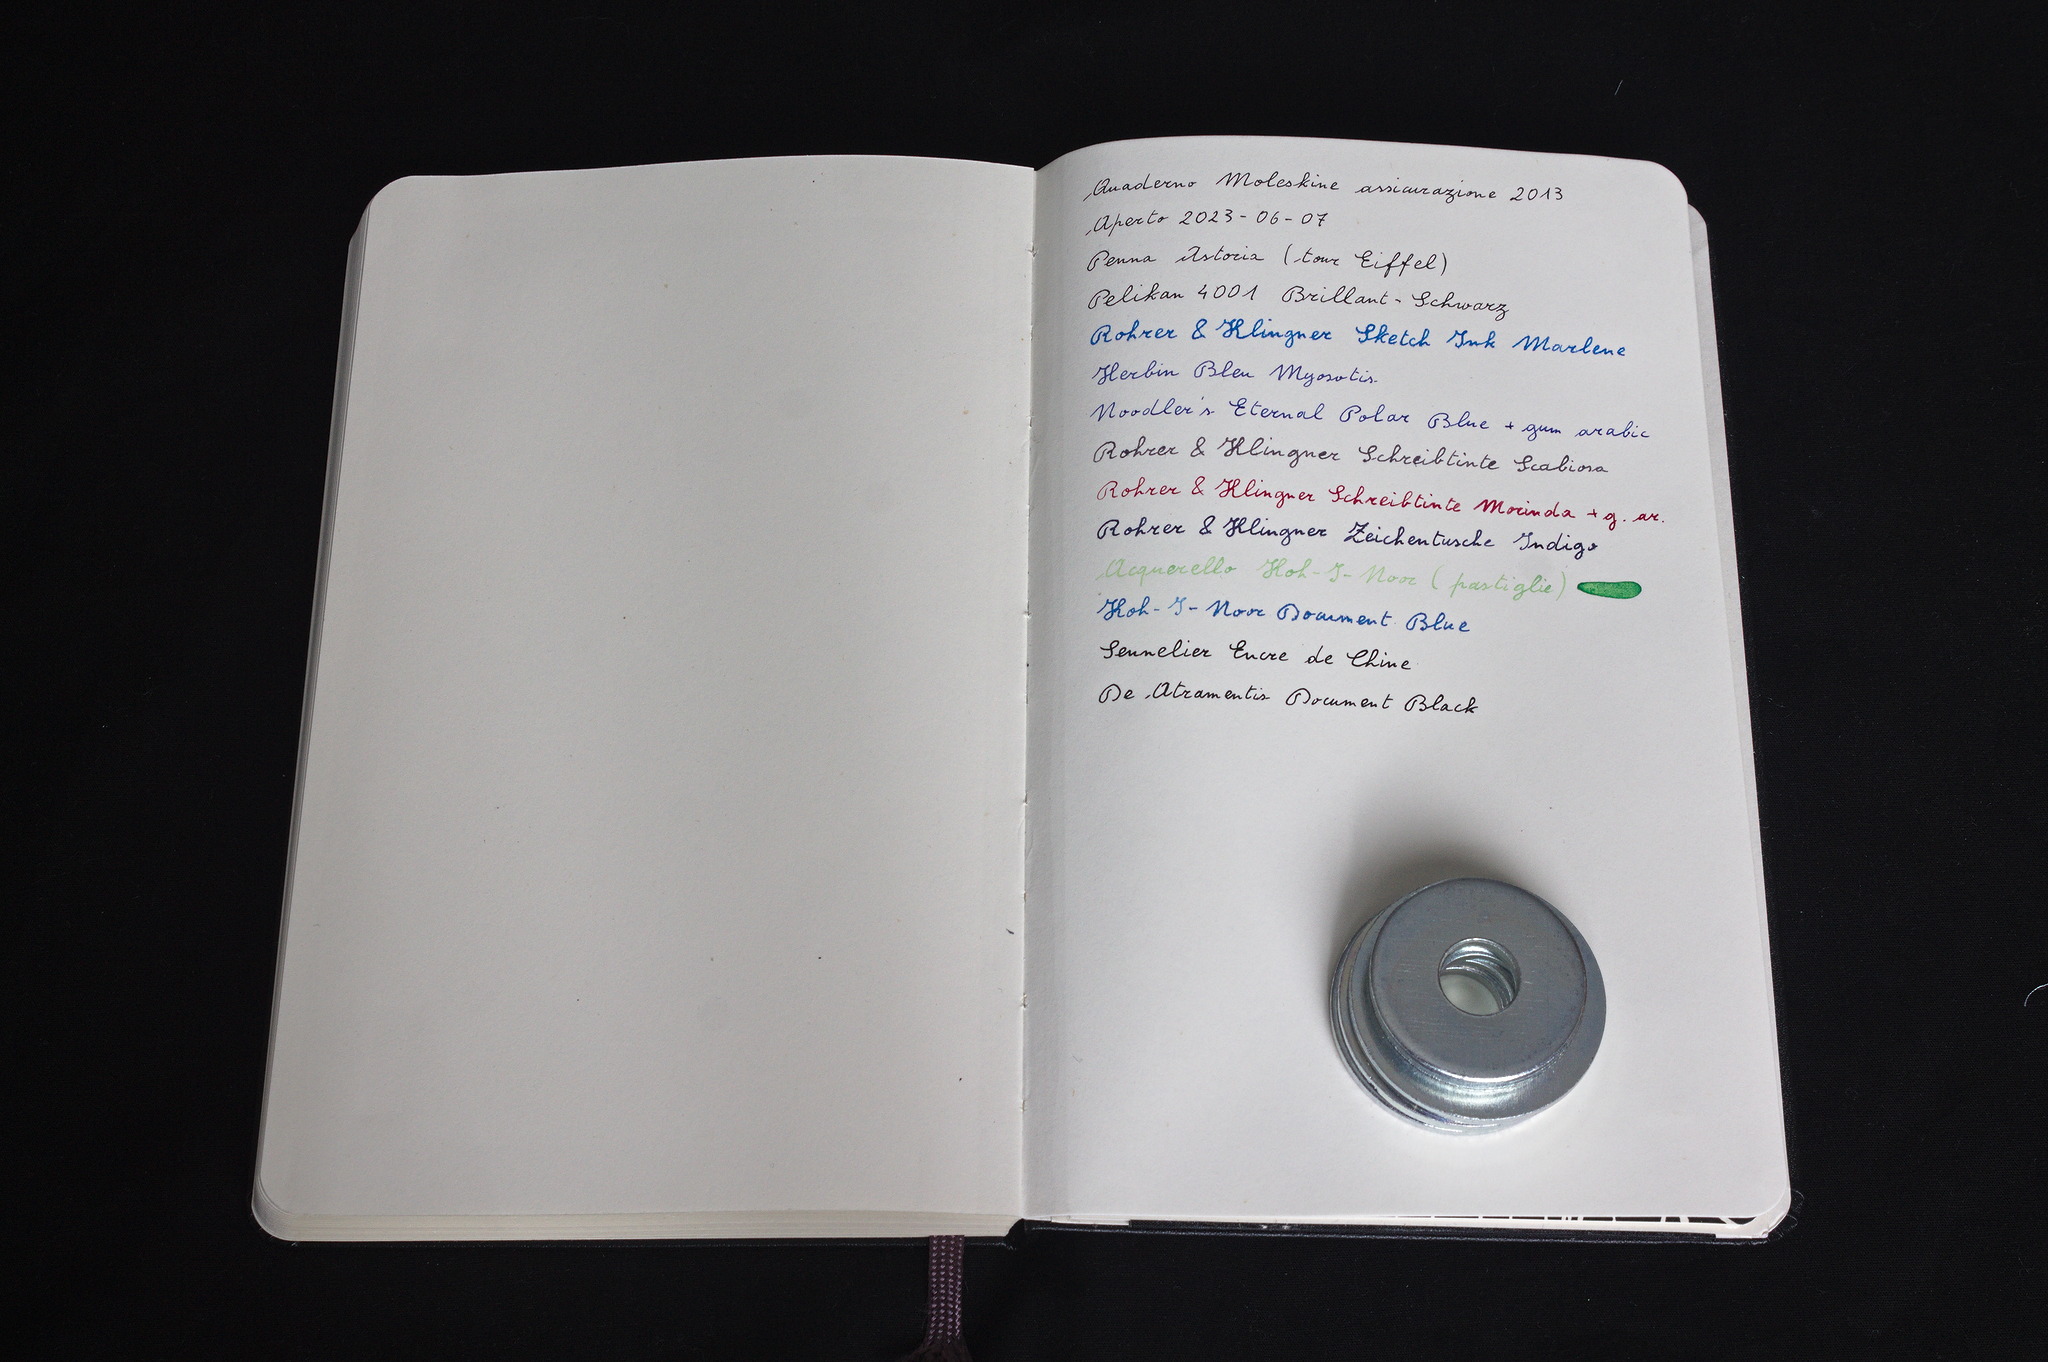 Quaderno Moleskine assicurazione 2013
Aperto 2023-06-07
Penna Astoria (tour Eiffel)
Pelikan 4001 Brillant-Schwarz
Rohrer & Klingner Sketch Ink Marlene
Herbin Bleu Myosotis
Noodler's Eternal Polar Blue + gum arabic
Rohrer & Klingner Schreibtinte Scabiosa
Rohrer & Klingner Schreibtinte Morinda + g. ar.
Rohrer & Klingner Zeichentusche Indigo
Acquerello Koh-I-Noor (pastiglie)
Koh-I-Noor Document Blue
Sennelier Encre de Chine
De Atramentis Document Black